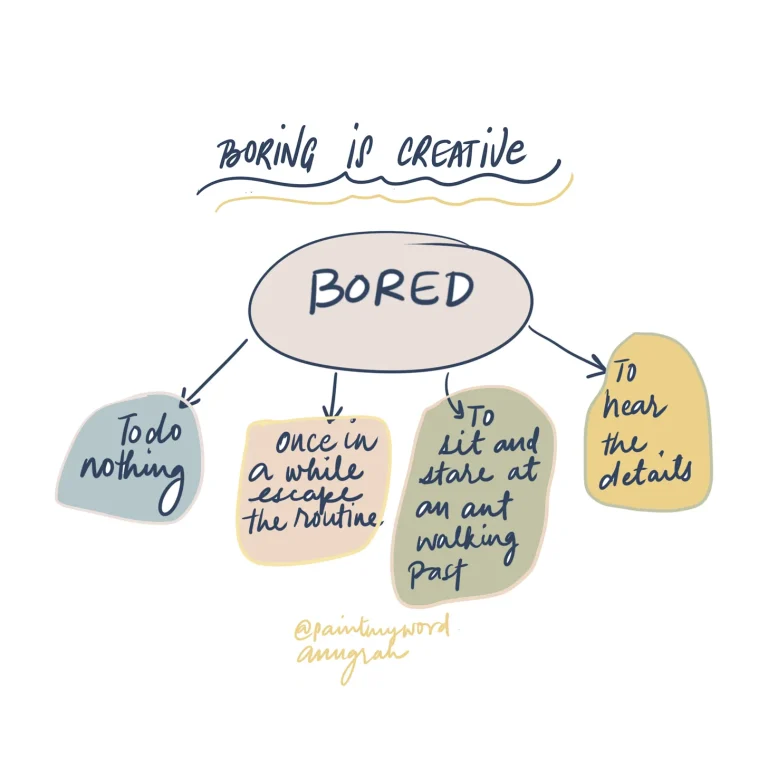 BORING IS CREATIVE
BORED
To do
nothing
once in
a while
escape
the routine.
To
sit and
stare at
an ant
walking
past
To
hear
the
details
@paintmyword
anugrah